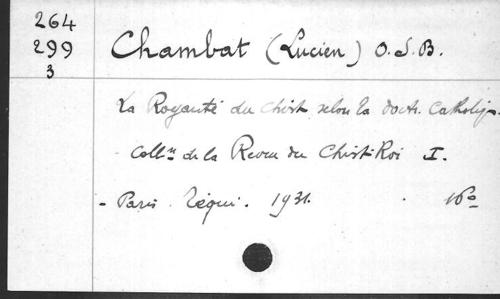 264
299
3
Chambat (Lucien) O.S.B.
La Royauté du Christ selon la doctr. Catholiq.
Coll.n de la Revue du Christ-Roi I.
- Paris. Téqui. 1931. 16o